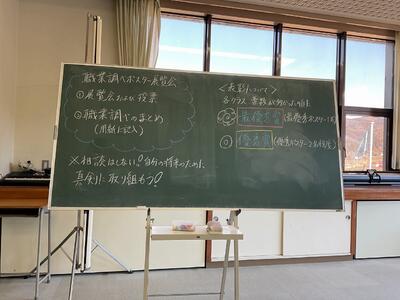 職業調べポスター展覧会
①展覧会および投票
②職業調べのまとめ
(用紙に記入)
※相談はしない!自分の将来のために
真剣に取り組もう!
<表彰について>
各クラス 票数が多かった順に
◎最優秀賞(最優秀ポスター1点)
◎優秀賞(優秀ポスター2点程度)